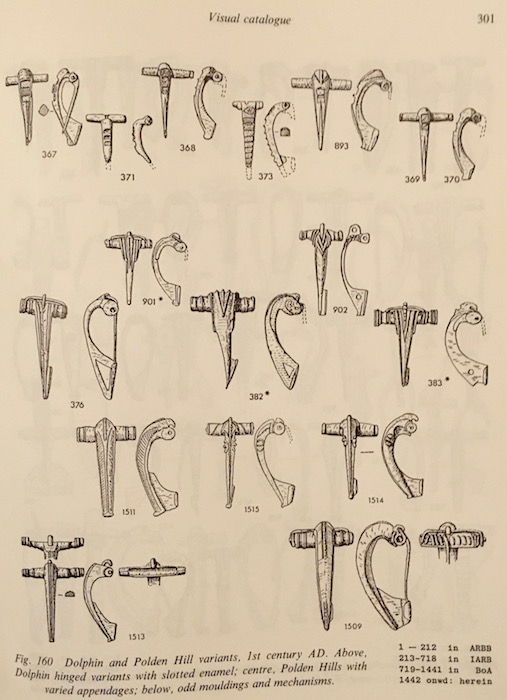 Visual catalogue
301
367
371
368
373
893
369 370
901 *
902
376
382 *
383 *
1511
1515
1514
1513
1509
Fig. 160 Dolphin and Polden Hill variants, 1st century AD. Above,
Dolphin hinged variants with slotted enamel; centre, Polden Hills with
varied appendages; below, odd mouldings and mechanisms.
1 — 212 in ARBB
213-718 in IARB
719-1441 in BoA
1442 onwd: herein